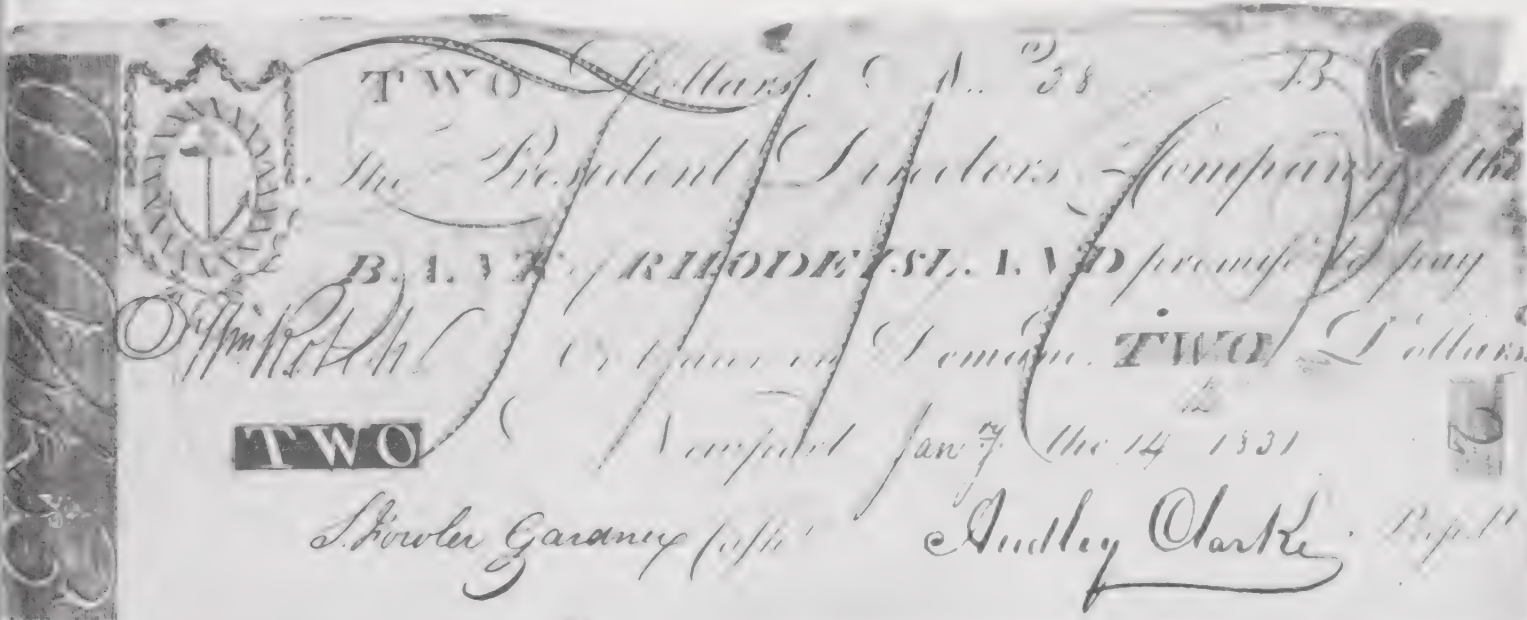 TWO Dollars. No. 38 B
The President Directors & Company of the
BANK of RHODE ISLAND promise to pay
Or bearer on Demand TWO Dollars
TWO Newport Jany. the 14th 1831
S. Fowler Gardner Cash.r Audley Clarke Presdt
TWO
2